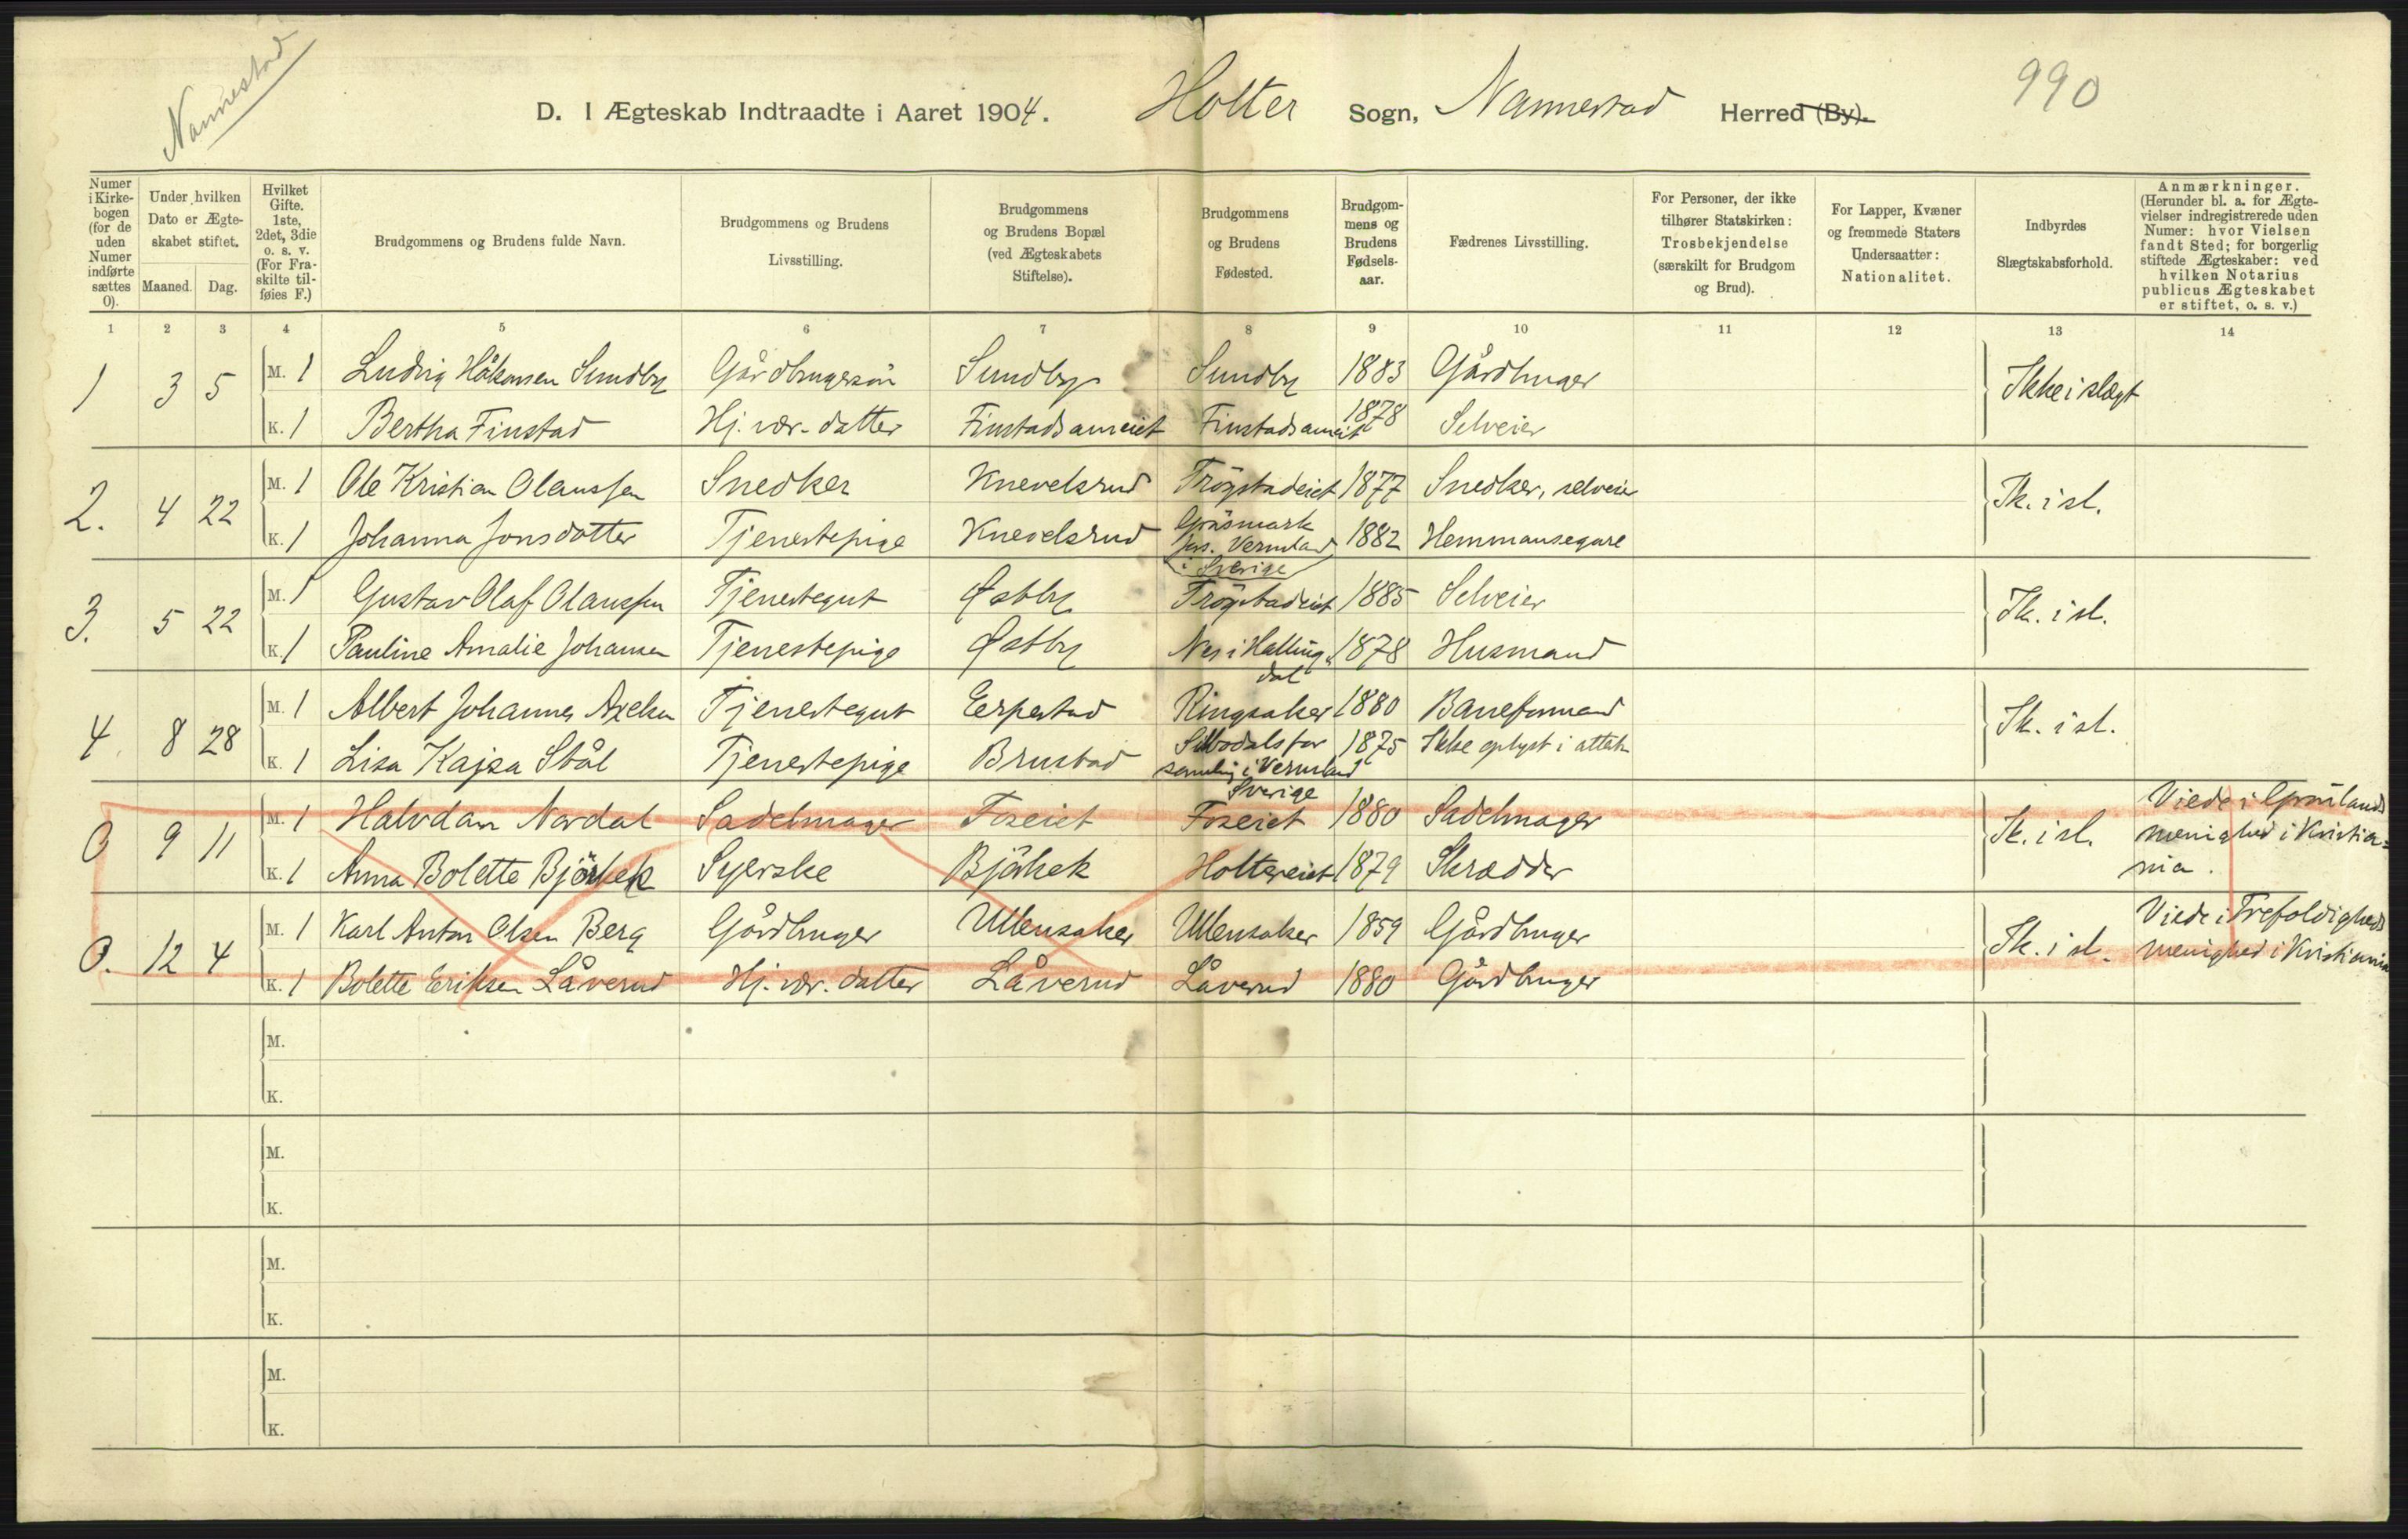 Nannestad
D. I Ægteskab Indtraadte i Aaret 1904. Holter Sogn, Nannestad Herred (By). 990
Numer i Kirkebogen (for de uden Numer indførte sættes 0).
Under hvilken Dato er Ægteskabet stiftet.
Maaned. Dag.
Hvilket Gifte. 1ste, 2det, 3die o. s. v. (For Fraskilte tilføies F.)
Brudgommens og Brudens fulde Navn.
Brudgommens og Brudens Livsstilling.
Brudgommens og Brudens Bopæl (ved Ægteskabets Stiftelse).
Brudgommens og Brudens Fødested.
Brudgommens og Brudens Fødselsaar.
Fædrenes Livsstilling.
For Personer, der ikke tilhører Statskirken: Trosbekjendelse (særskilt for Brudgom og Brud).
For Lapper, Kvæner og fremmede Staters Undersaatter: Nationalitet.
Indbyrdes Slægtskabsforhold.
Anmærkninger. (Herunder bl. a. for Ægtevielser indregistrerede uden Numer: hvor Vielsen fandt Sted; for borgerlig stiftede Ægteskaber: ved hvilken Notarius publicus Ægteskabet er stiftet, o. s. v.)
1 2 3 4 5 6 7 8 9 10 11 12 13 14
1 3 5 M. 1 Ludvig Håkonsen Sundby Gårdbrugersön Sundby Sundby 1883 Gårdbruger Ikke i slægt
K. 1 Bertha Finstad Hj. vær. datter Finstadsameiet Finstadsameiet 1878 Selveier
2. 4 22 M. 1 Ole Kristian Olaussen Snedker Knevelsrud Trögstadeiet 1877 Snedker, selveier Ik. i sl.
K. 1 Johanna Jonsdotter Tjenestepige Knevelsrud Gräsmark pgs. Vermland i Sverige 1882 Hemmansegare
3. 5 22 M. 1 Gustav Olaf Olaussen Tjenestegut Østby Trögstadeiet 1885 Selveier Ik. i sl.
K. 1 Pauline Amalie Johansen Tjenestepige Østby Nes i Hallingdal 1878 Husmand
4. 8 28 M. 1 Albert Johannes Axelsen Tjenestegut Eerpestad Ringsaker 1880 Baneformand Ik. i sl.
K. 1 Lisa Kajsa Stål Tjenestepige Brustad Silbodals församling i Vermland Sverige 1875 Ikke oplyst i attest
0 9 11 M. 1 Halvdan Nordal Sadelmager Foseiet Foseiet 1880 Sadelmager Ik. i sl. Viede i Grönlands menighed i Kristiania.
K. 1 Anna Bolette Björkek Syerske Björkek Holtereiet 1879 Skrædder
0. 12 4 M. 1 Karl Anton Olsen Berg Gårdbruger Ullensaker Ullensaker 1859 Gårdbruger Ik. i sl. Viede i Trefoldigheds menighed i Kristiania
K. 1 Bolette Eriksen Låverud Hj. vær. datter Låverud Låverud 1880 Gårdbruger
M.
K.
M.
K.
M.
K.
M.
K.